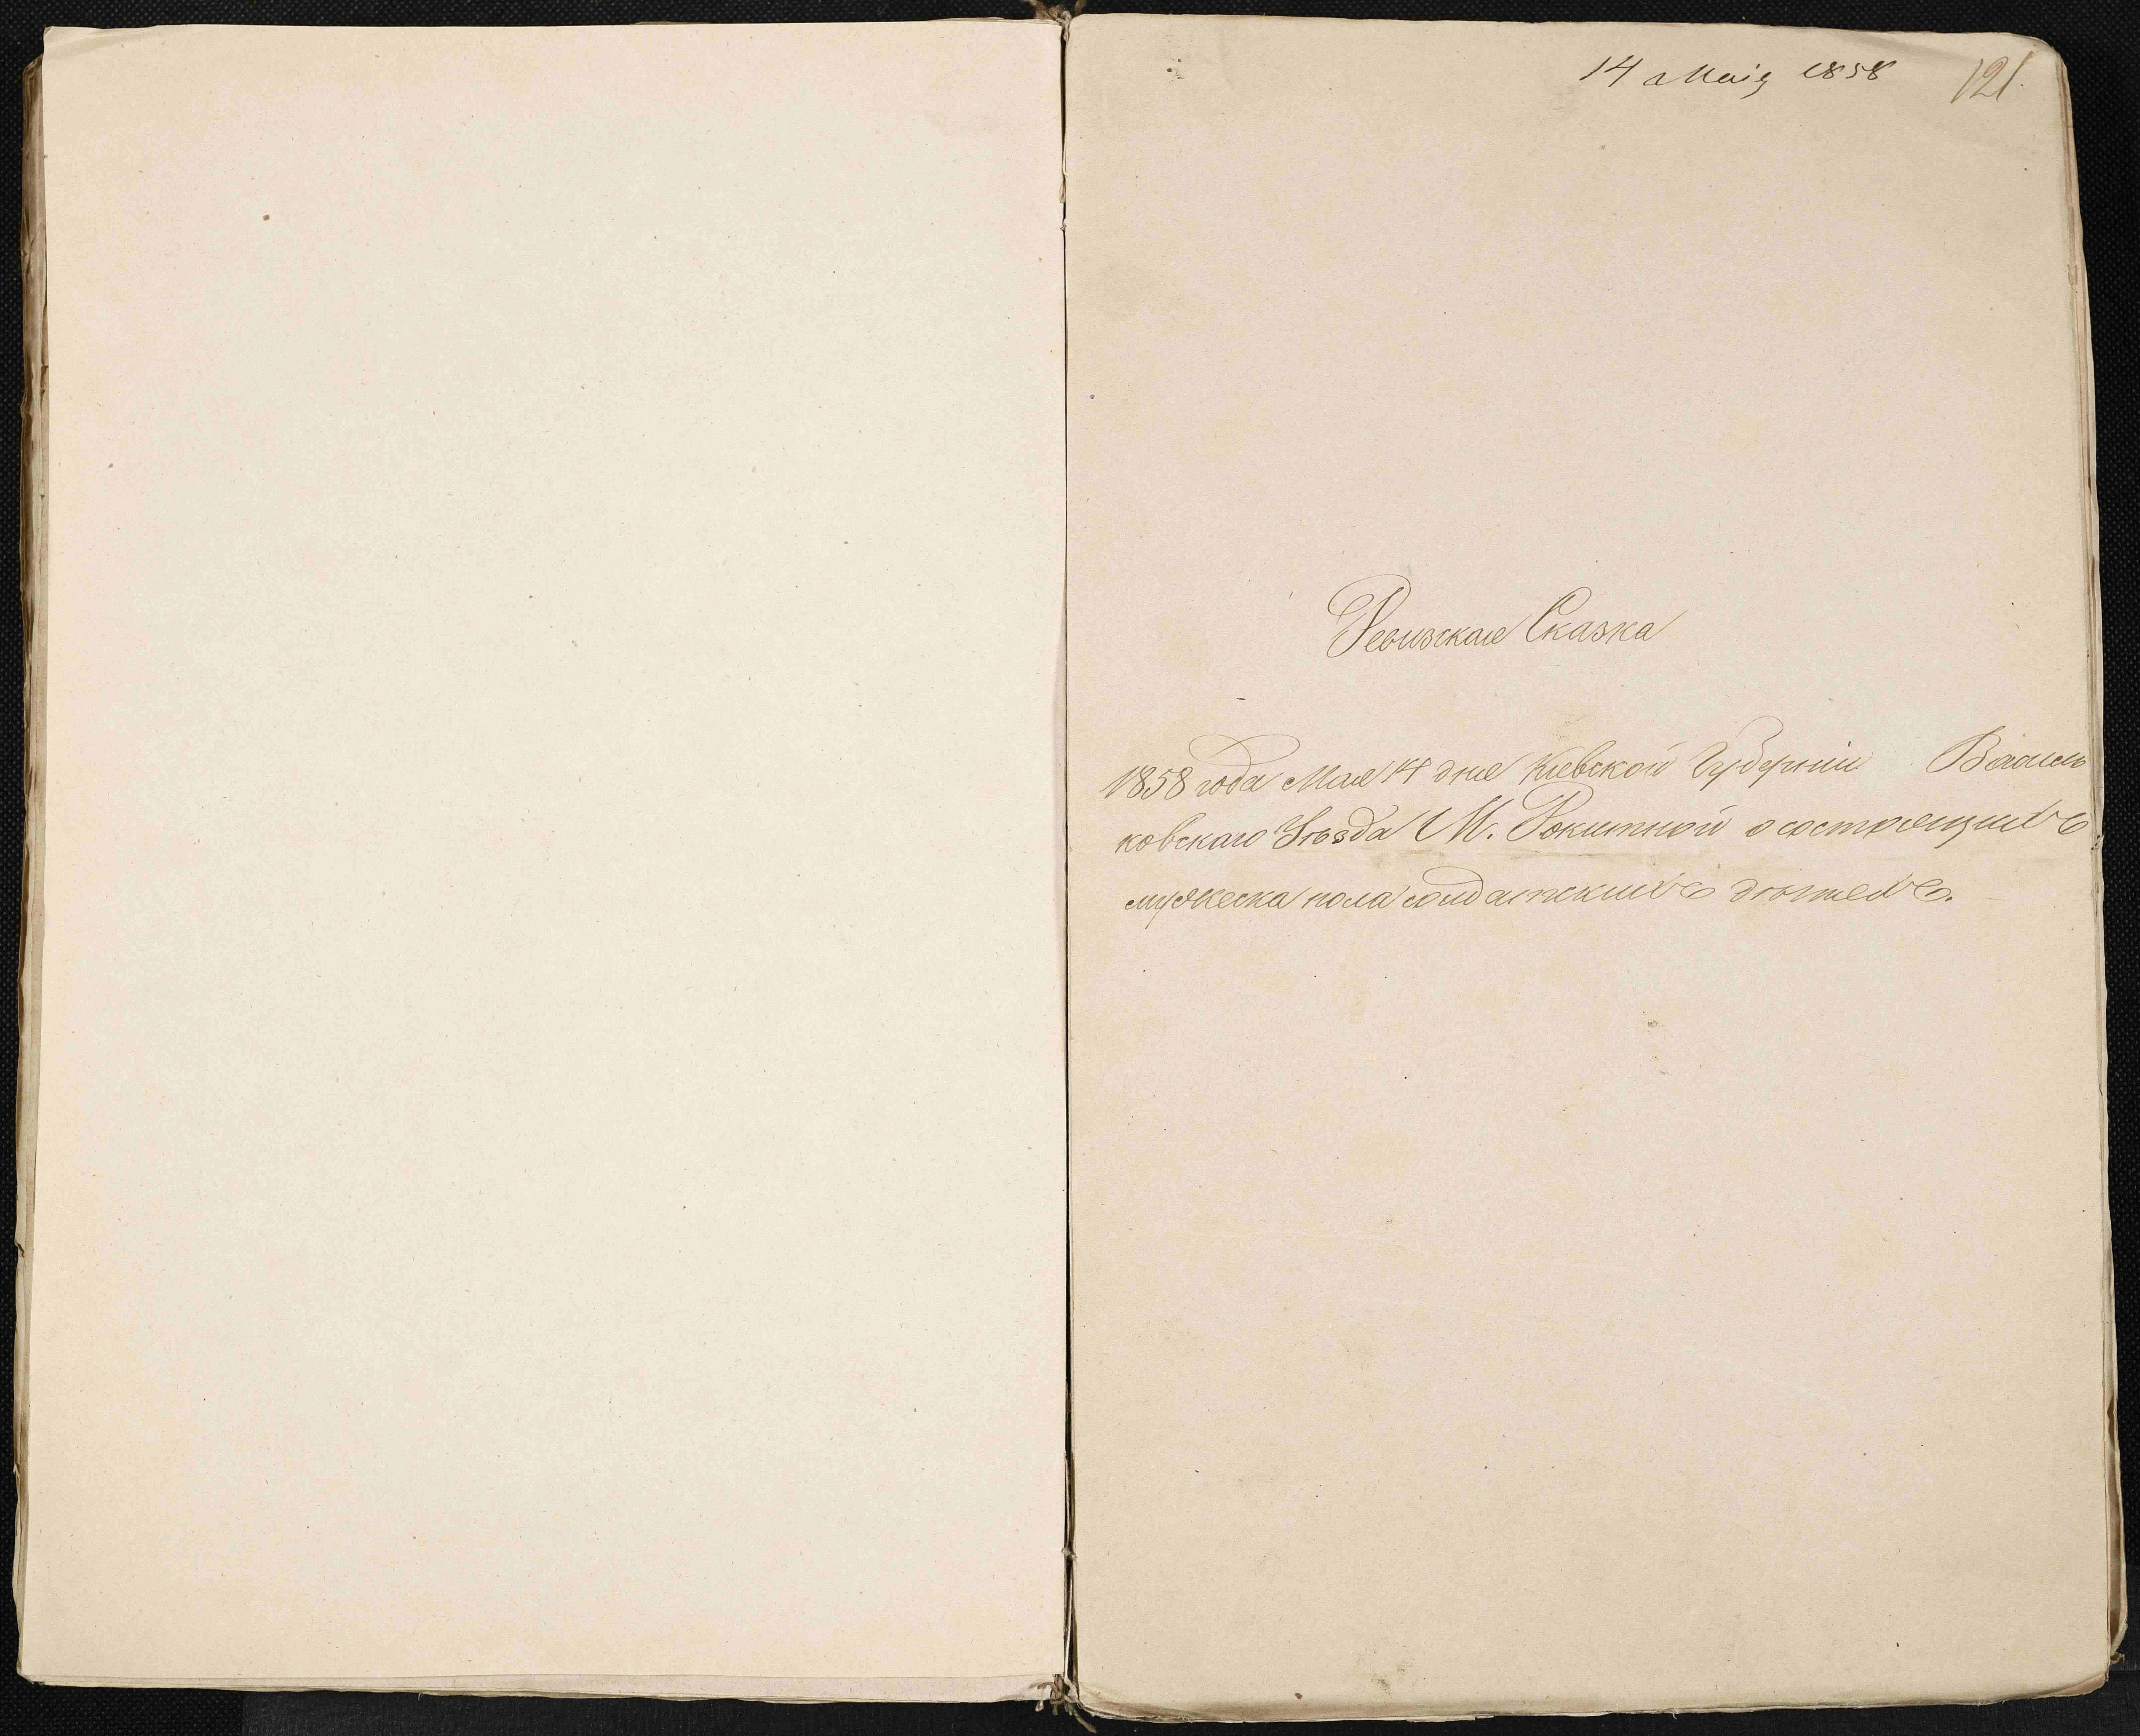 14 Мая 1858 121.
Ревизская Сказка
1858 года Мая 14 дня Киевской Губерніи Василь
ковскаго Уѣзда М. Рокитной о состоящихъ
мужеска пола солдатскихъ дѣтехъ.